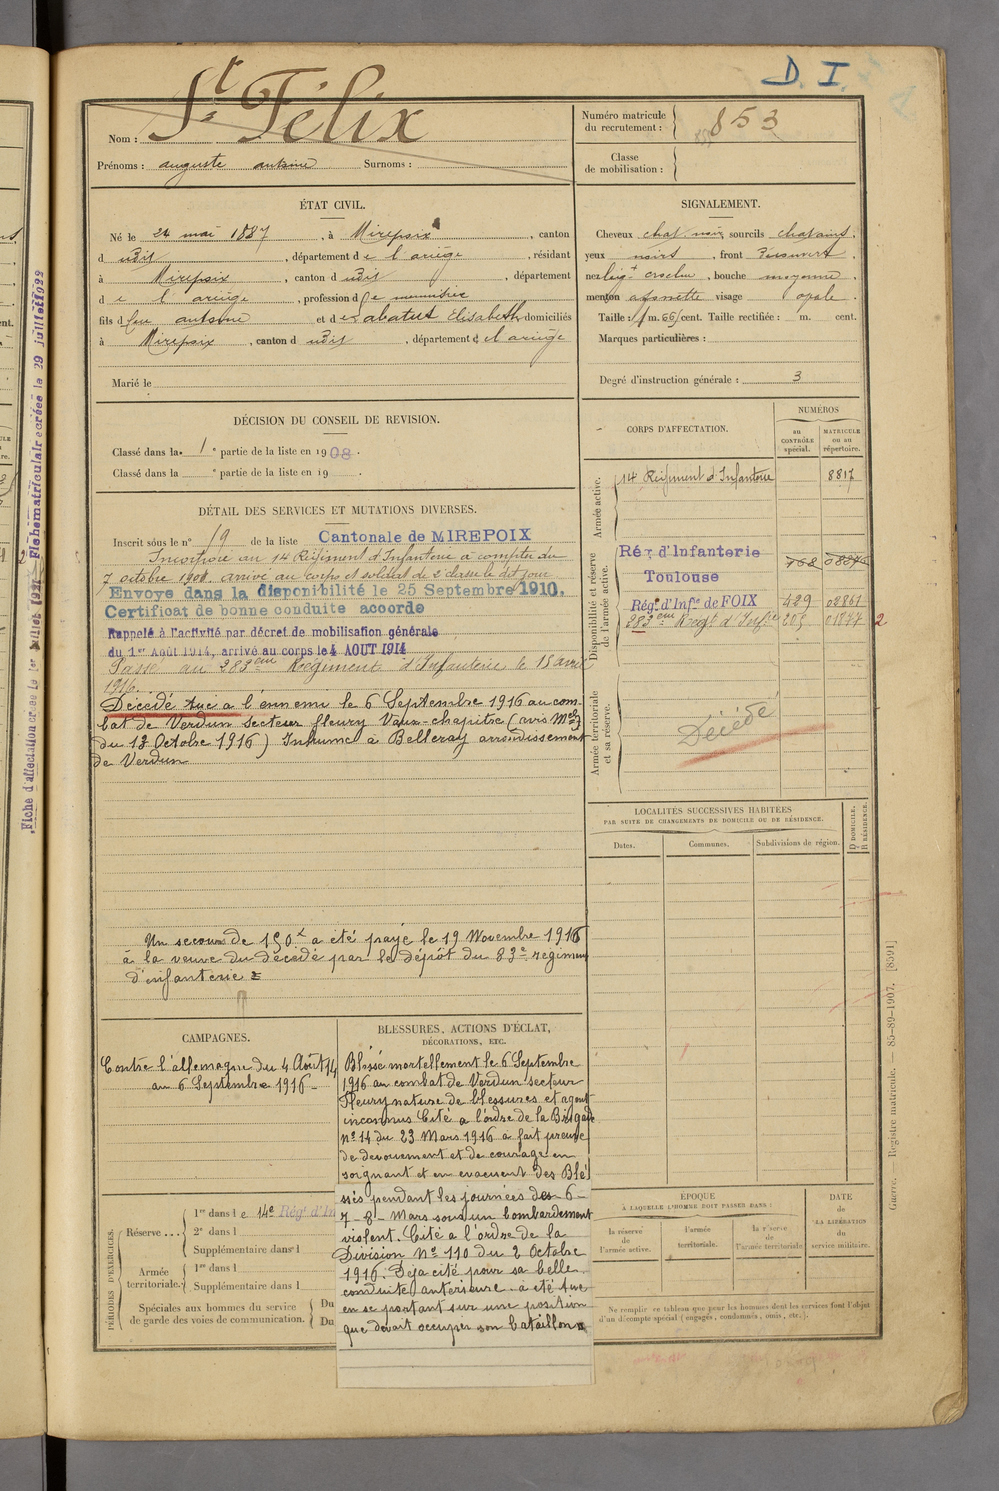 D. I.
St Félix
Nom :
Prénoms : auguste antoine Surnoms :
Numéro matricule du recrutement : 853
Classe de mobilisation :
ÉTAT CIVIL.
Né le 24 mai 1887, à Mirepoix, canton
d udit, département de l'ariège, résidant
à Mirepoix, canton d udit, département
de l'ariège, profession de menuisier
fils d feu antoine et de abatut Elisabeth domiciliés
à Mirepoix, canton d udit, département de l'ariège
Marié le
SIGNALEMENT.
Cheveux chat noir, sourcils chatains,
yeux noirs, front
nez bouche moyenne,
menton visage ovale.
Taille : 1 m. 66 cent. Taille rectifiée : m. cent.
Marques particulières :
Degré d'instruction générale : 3
DÉCISION DU CONSEIL DE REVISION.
Classé dans la 1e partie de la liste en 1908.
Classé dans la e partie de la liste en 19
DÉTAIL DES SERVICES ET MUTATIONS DIVERSES.
Inscrit sous le n° 19 de la liste Cantonale de MIREPOIX
Incorporé au 14 Régiment d'Infanterie à compter du
7 octobre 1908. arrivé au corps et soldat de 2 classe le dit jour
Envoyé dans la disponibilité le 25 Septembre 1910.
Certificat de bonne conduite accordé
Rappelé à l'activité par décret de mobilisation générale
du 1er Août 1914, arrivé au corps le 4 AOUT 1914
Passé au 283ème Régiment d'Infanterie le 15 avril
1916.
Décédé tué à l'ennemi le 6 Septembre 1916 au com-
bat de Verdun secteur fleury Vaux-chapitre (avis Mel
du 13 Octobre 1916) Inhumé à Belleray arrondissement
de Verdun
Un secours de 150f a été payé le 19 Novembre 1916
à la veuve du décédé par le dépôt du 83e régiment
d'infanterie =
CORPS D'AFFECTATION.
NUMÉROS
au CONTRÔLE spécial.
MATRICULE ou au répertoire.
Armée active.
14 Régiment d'Infanterie 8817
Disponibilité et réserve de l'armée active.
Rég. d'Infanterie
Toulouse
Régt d'Infie de FOIX 429 02861
283ème Régt d'Infie 205 01877 2
Armée territoriale et sa réserve.
Décédé
LOCALITÉS SUCCESSIVES HABITÉES
PAR SUITE DE CHANGEMENTS DE DOMICILE OU DE RÉSIDENCE.
Dates.
Communes.
Subdivisions de région.
D DOMICILE.
R RÉSIDENCE.
CAMPAGNES.
Contre l'allemagne du 4 Août 14
au 6 Septembre 1916 -
BLESSURES, ACTIONS D'ÉCLAT,
DÉCORATIONS, ETC.
Blessé mortellement le 6 Septembre
1916 au combat de Verdun secteur
Fleury nature de blessures et agent
inconnus Cité a l'ordre de la Brigade
N° 14 du 23 Mars 1916 a fait preuve
de devouement et de courage en
soignant et en evacuent des Blé
ssés pendant les journées des 6 -
7 - 8 - Mars sous un bombardement
violent. Cité a l'ordre de la
Division N° 110 du 2 Octobre
1916. Déja cité pour sa belle
conduite antérieure. a été tué
en se portant sur une position
que devait occuper son bataillon
PÉRIODES D'EXERCICES.
Réserve...
1re dans le 14e Régt d'In
2e dans l
Supplémentaire dans l
Armée territoriale.
1re dans l
Supplémentaire dans l
Spéciales aux hommes du service de garde des voies de communication.
Du
Du
ÉPOQUE
À LAQUELLE L'HOMME DOIT PASSER DANS :
la réserve de l'armée active.
l'armée territoriale.
la réserve de l'armée territoriale
DATE de LA LIBÉRATION du service militaire.
Ne remplir ce tableau que pour les hommes dont les services font l'objet
d'un décompte spécial (engagés, condamnés, omis, etc.).
Guerre. — Registre matricule. — 85-89-1907. [8591]
Fiche d'affectation créée le 1er Juillet 1921 Fichematriculaire créée le 29 juillet 1922